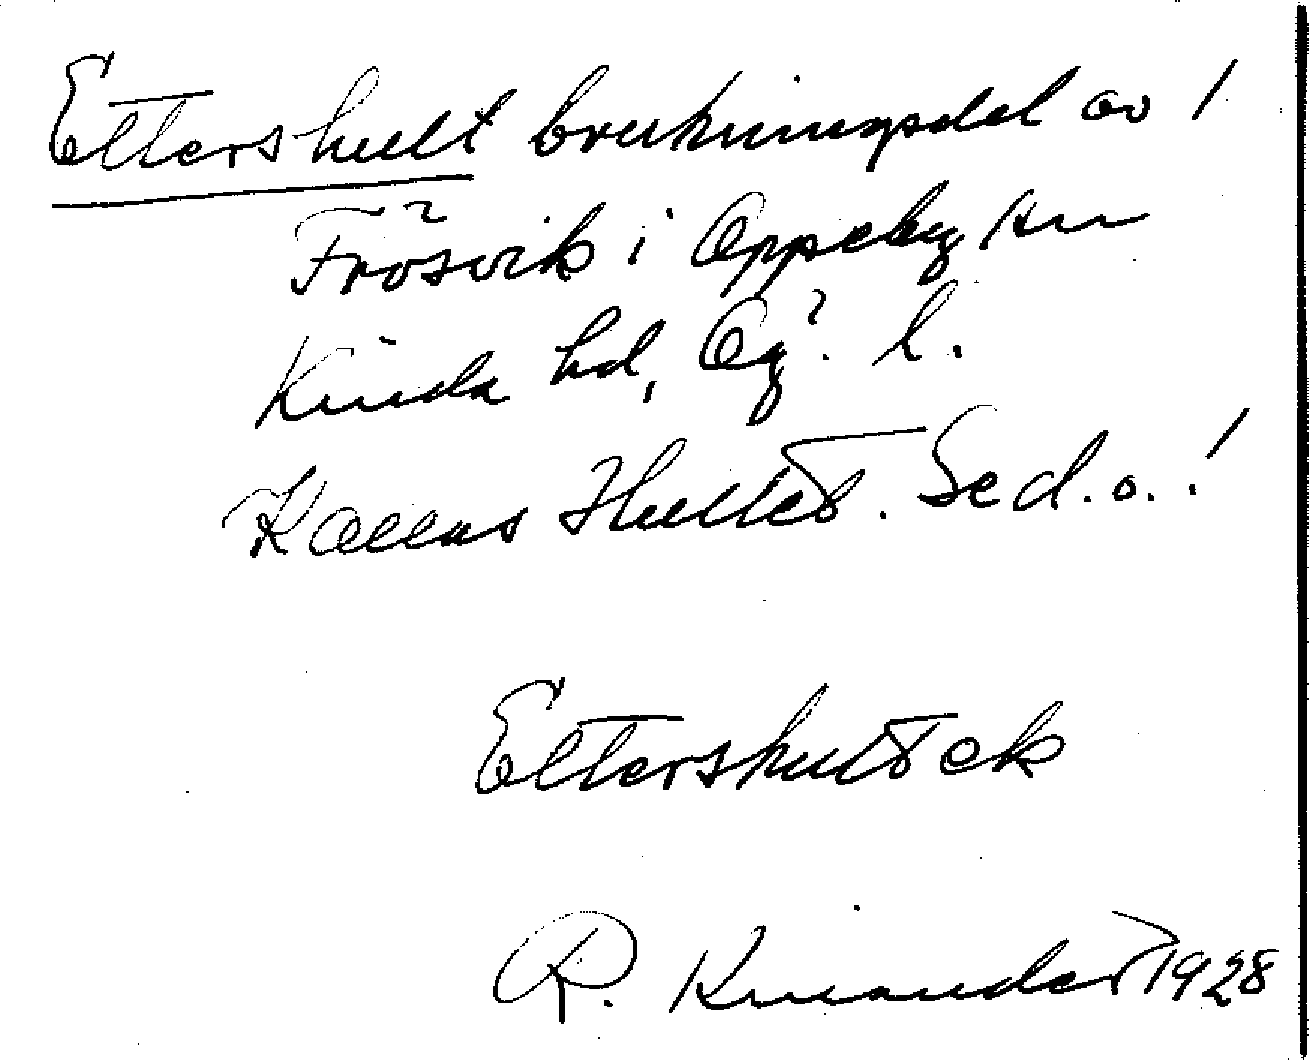 Ettershult brukningsdel av 1
Frösvik i Oppeby sn
Kinda hd, Ög. l.
Kallas Hultet. Se d. o.!
Ettershult ek
R. Kinander 1928